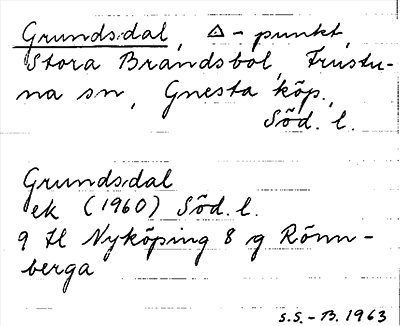 Grundsdal, △-punkt,
Stora Brandsbol, Frustu-
na sn, Gnesta köp.,
Söd. l.
Grundsdal
ek (1960) Söd. l.
9 H Nyköping 8 g Rönn-
berga
S.S.-B. 1963